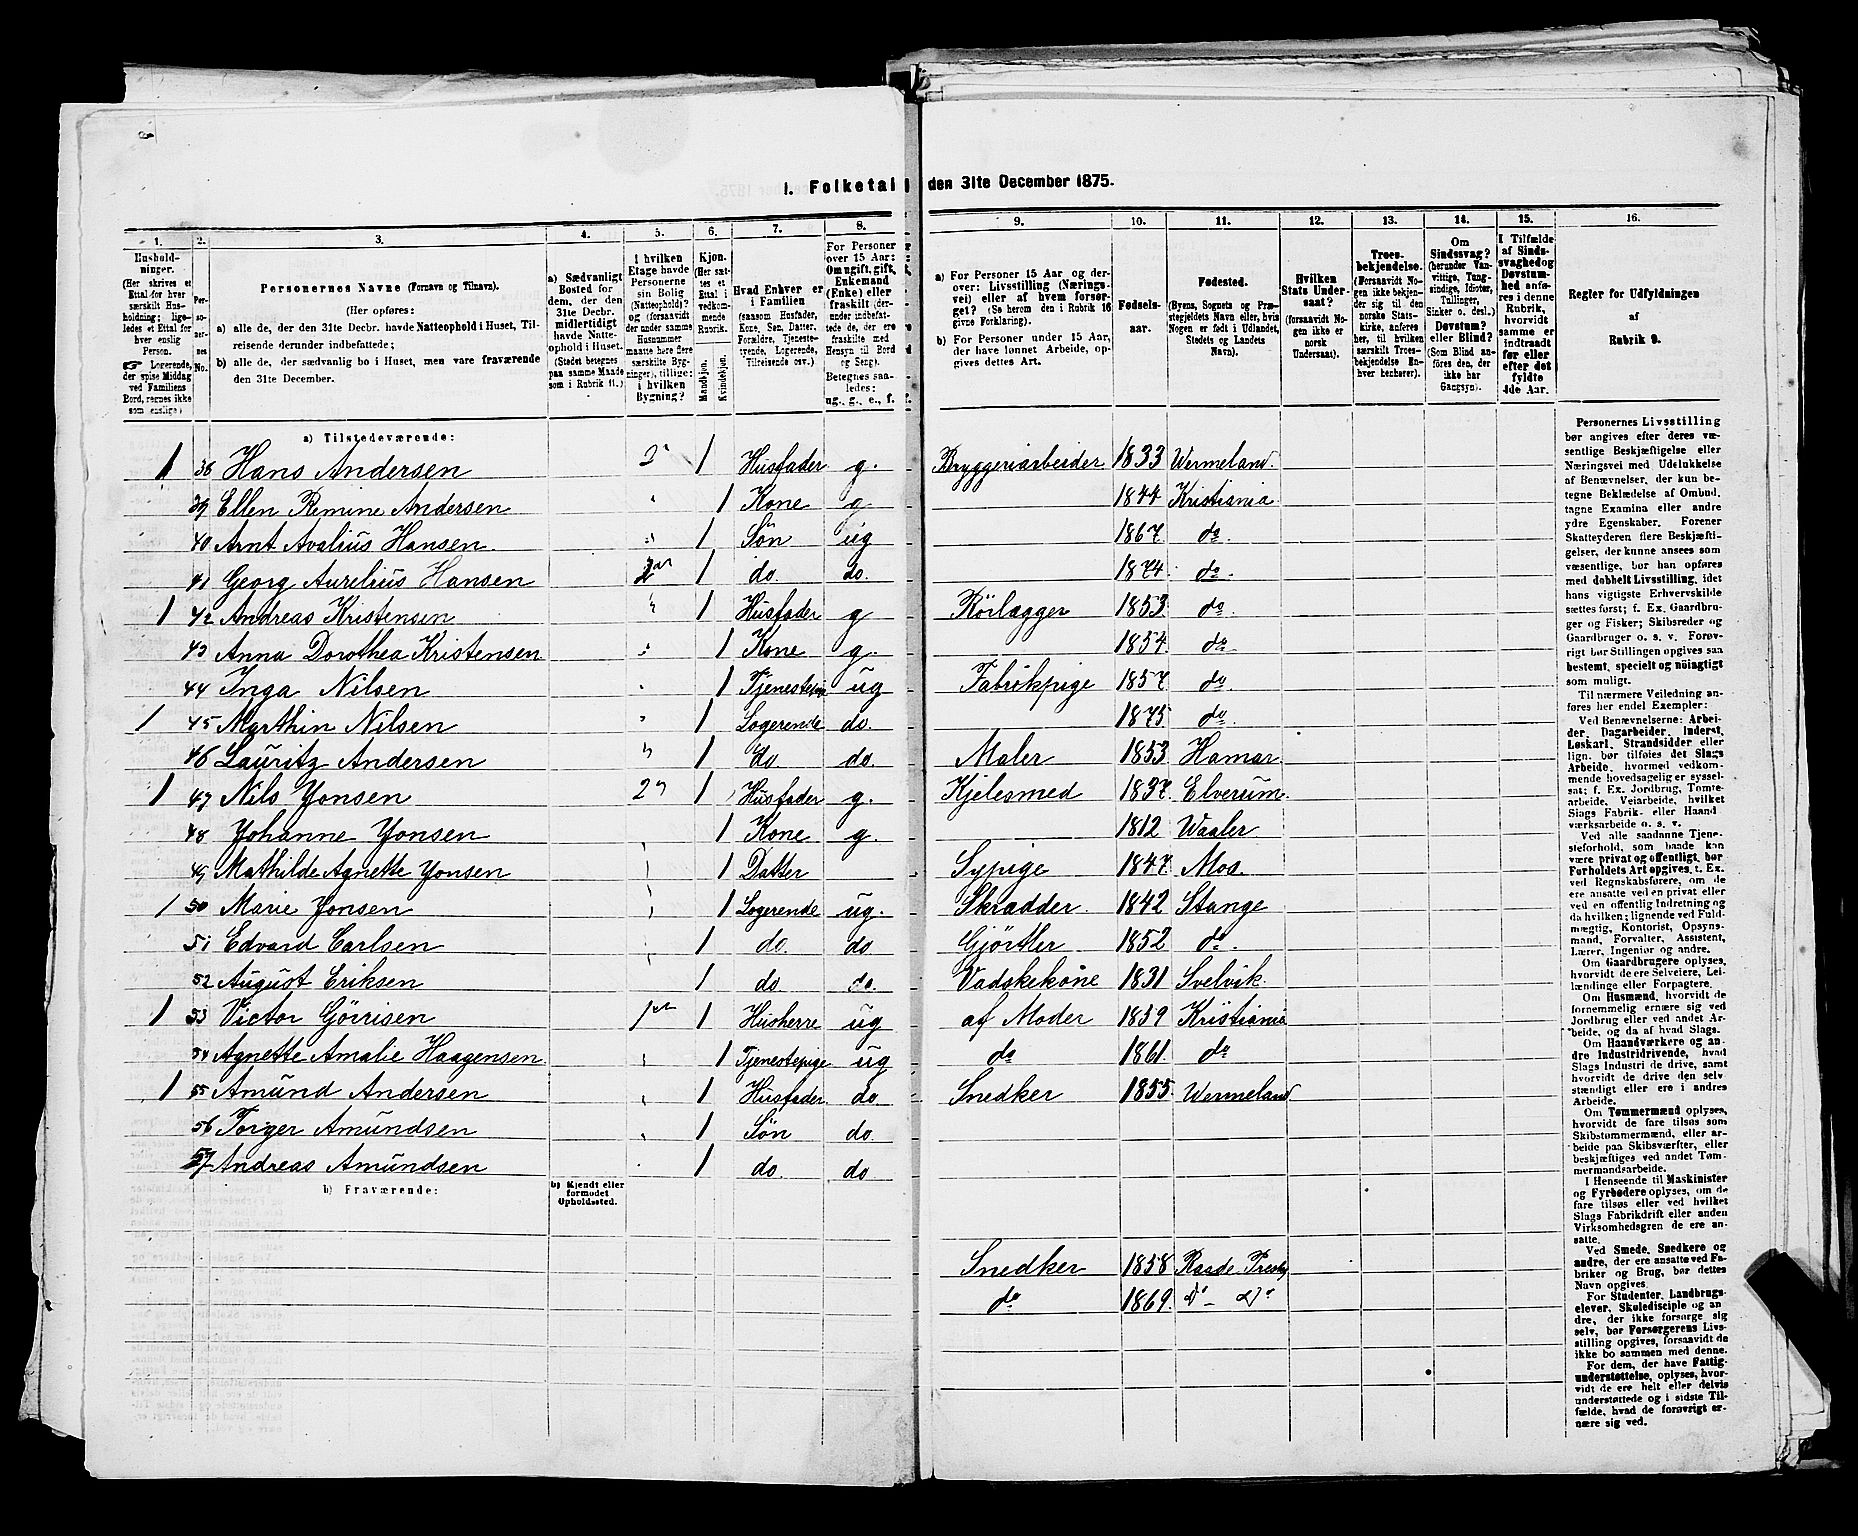 1. Folketal den 31te December 1875.
1. 2. 3. 4. 5. 6. 7. 8. 9. 10. 11. 12. 13. 14. 15. 16.
Hushold-
ninger.
(Her skrives et
Ettal for hver
særskilt Hus-
holdning; lige-
ledes et Ettal for
hver enslig
Person.
☞ Logerende,
der spise Middag
ved Familiens
Bord, regnes ikke
som enslige.)
Per-
so-
ner-
nes
No.
Personernes Navne (Fornavn og Tilnavn).
(Her opføres:
a) alle de, der den 31te Decbr. havde Natteophold i Huset, Til-
reisende derunder indbefattede;
b) alle de, der sædvanlig bo i Huset, men vare fraværende
den 31te December.
a) Sædvanligt
Bosted for
dem, der den
31te Decbr.
midlertidigt
havde Natte-
ophold i Huset.
(Stedet betegnes
paa samme Maade
som i Rubrik 11.)
I hvilken
Etage havde
Personerne
sin Bolig
(Natteophold)?
og (forsaavidt
der under samme
Husnummer
maatte høre flere
særskilte Byg-
ninger), tillige:
i hvilken
Bygning?
Kjøn.
(Her sæt-
tes et
Ettal i
vedkom-
mende
Rubrik.
Mandkjøn.
Kvindekjøn.
Hvad Enhver er
i Familien
(saasom Husfader,
Kone, Søn, Datter,
Forældre, Tjeneste-
tyende, Logerende,
Tilreisende osv.).
For Personer
over 15 Aar:
Om ugift, gift,
Enkemand
(Enke) eller
fraskilt (der-
indbefattede
de, der ere
fraskilte med
Hensyn til Bord
og Seng).
Betegnes saa-
ledes:
ug., g., e., f.
a) For Personer 15 Aar og der-
over: Livsstilling (Nærings-
vei) eller af hvem forsør-
get? (Se herom den i Rubrik 16
givne Forklaring).
b) For Personer under 15 Aar,
der have lønnet Arbeide, op-
gives dettes Art.
Fødsels-
aar.
Fødested.
(Byens, Sognets og Præ-
stegjeldets Navn eller, hvis
Nogen er født i Udlandet,
Stedets og Landets
Navn).
Hvilken
Stats Under-
saat?
(forsaavidt No-
gen ikke er
norsk
Undersaat).
Troes-
bekjendelse.
(Forsaavidt No-
gen ikke bekjen-
der sig til den
norske Stats-
kirke, anføres
her, til hvilken
særskilt Troes-
bekjendelse En-
hver henhører).
Om
Sindssvag?
(herunder Van-
vittige, Tung-
sindige, Idioter,
Tullinger,
Sinker o. desl.)
Døvstum?
eller Blind?
(Som Blind an-
føres den, der
ikke har
Gangsyn).
I Tilfælde
af Sinds-
svaghed og
Døvstum-
hed anfø-
res i denne
Rubrik,
hvorvidt
samme er
indtraadt
før eller
efter det
fyldte
4de Aar.
Regler for Udfyldningen
af
Rubrik 9.
a) Tilstedeværende:
1 38 Hans Andersen 2 1 Husfader g. Bryggeriarbeider 1833 Wermeland.
39 Ellen Remine Andersen " 1 Kone g 1844 Kristiania
40 Arnt Avalius Hansen " 1 Søn ug 1867. do
41 Georg Aurelius Hansen 2 1 do. do. 1874. do.
1 42 Andreas Kristensen " 1 Husfader g Rörlægger 1853. do
43 Anna Dorothea Kristensen " 1 Kone g. 1854. do
44 Inga Nilsen " 1 Tjenestepige ug Fabrikpige 1857. do
1 45 Marthin Nilsen " 1 Logerende do. 1875 do.
46 Lauritz Andersen " 1 do do. Maler 1853 Hamar
1 47 Nils Yonsen 2 1 Husfader g. Kjelesmed 1837. Elverum.
48 Johanne Yonsen 1 Kone g. 1812 Waaler
49 Mathilde Agnette Yonsen 1 Datter Sypige 1847. Mos.
1 50 Marie Yonsen 1 Logerende ug. Skrædder. 1842 Stange
51 Edvard Carlsen 1 do. do Gjörtler 1852 do.
52 August Eriksen 1 do do. Vadskekone 1831 Svelvik.
1 53 Victor Görrisen 1 1 Husherre ug af Moder 1859 Kristiania
54 Agnette Amalie Haagensen 1 Tjenestepige ug do 1861. do
1 55 Amund Andersen 1 Husfader. do. Snedker 1855. Wermeland
56 Torger Amundsen 1 Søn do.
57 Andreas Amundsen 1 do. do
b) Fraværende:
b) Kjendt eller
formodet
Opholdssted.
Snedker 1858 Raade Presteg
do 1869. do - do
Personernes Livsstilling
bør angives efter deres væ-
sentlige Beskjæftigelse eller
Næringsvei med Udelukkelse
af Benævnelser, der kun be-
tegne Beklædelse af Ombud,
tagne Examina eller andre
ydre Egenskaber. Forener
Skatteyderen flere Beskjæfti-
gelser, der kunne ansees som
væsentlige, bør han opføres
med dobbelt Livsstilling, idet
hans vigtigste Erhvervskilde
sættes først; f. Ex. Gaardbru-
ger og Fisker; Skibsreder og
Gaardbruger o. s. v. Forøv-
rigt bør Stillingen opgives saa
bestemt, specielt og nøiagtigt
som muligt.
Til nærmere Veiledning an-
føres her endel Exempler:
Ved Benævnelserne: Arbei-
der, Dagarbeider, Inderst,
Løskarl, Strandsidder eller
lign. bør tilføies det Slags
Arbeide, hvormed vedkom-
mende hovedsagelig er syssel-
sat; f. Ex. Jordbrug, Tømte-
arbeide, Veiarbeide, hvilket
Slags Fabrik- eller Haand
værksarbeide o. s. v.
Ved alle saadanne Tjene-
steforhold, som baade kan
være privat og offentligt, bør
Forholdets Art opgives, t. Ex.
ved Regnskabsførere, om de
ere ansatte ved en privat eller
ved en offentlig Indretning og
da hvilken; lignende ved Fuld-
mægtig, Kontorist, Opsyns-
mand, Forvalter, Assistent,
Lærer, Ingeniør og andre.
Om Gaardbrugere oplyses,
hvorvidt de ere Selveiere, Lei-
lændinge eller Forpagtere.
Om Husmænd, hvorvidt de
fornemmelig ernære sig ved
Jordbrug eller ved andet Ar-
beide, og da af hvad Slags.
Om Haandværkere og an-
dre Industridrivende, hvad
Slags Industri de drive, samt
hvorvidt de drive den selv-
stændigt eller ere i andres
Arbeide.
Om Tømmermænd oplyses,
hvorvidt de fare tilsøs som
Skibstømmermænd, eller ar-
beide paa Skibsværfter, eller
beskjæftiges ved andet Tøm-
mermandsarbeide.
I Henseende til Maskinister
og Fyrbødere oplyses, om de
fare tilsøs eller ved hvilket
Slags Fabrikdrift eller anden
Virksomhedsgren de ere an-
satte.
Ved Smede, Snedkere og
andre, der ere ansatte ved Fa-
briker og Brug, bør dettes
Navn opgives.
For Studenter, Landbrugs-
elever, Skoledisciple og an-
dre, der ikke forsørge sig
selv, bør Forsørgerens Livs-
stilling opgives, forsaavidt de
ikke bo sammen med denne.
For dem, der have Fattig-
understøttelse, oplyses, hvor-
vidt de ere helt eller delvis
understøttede og i sidste Til-
fælde, hvad de forøvrigt er-
nære sig ved.